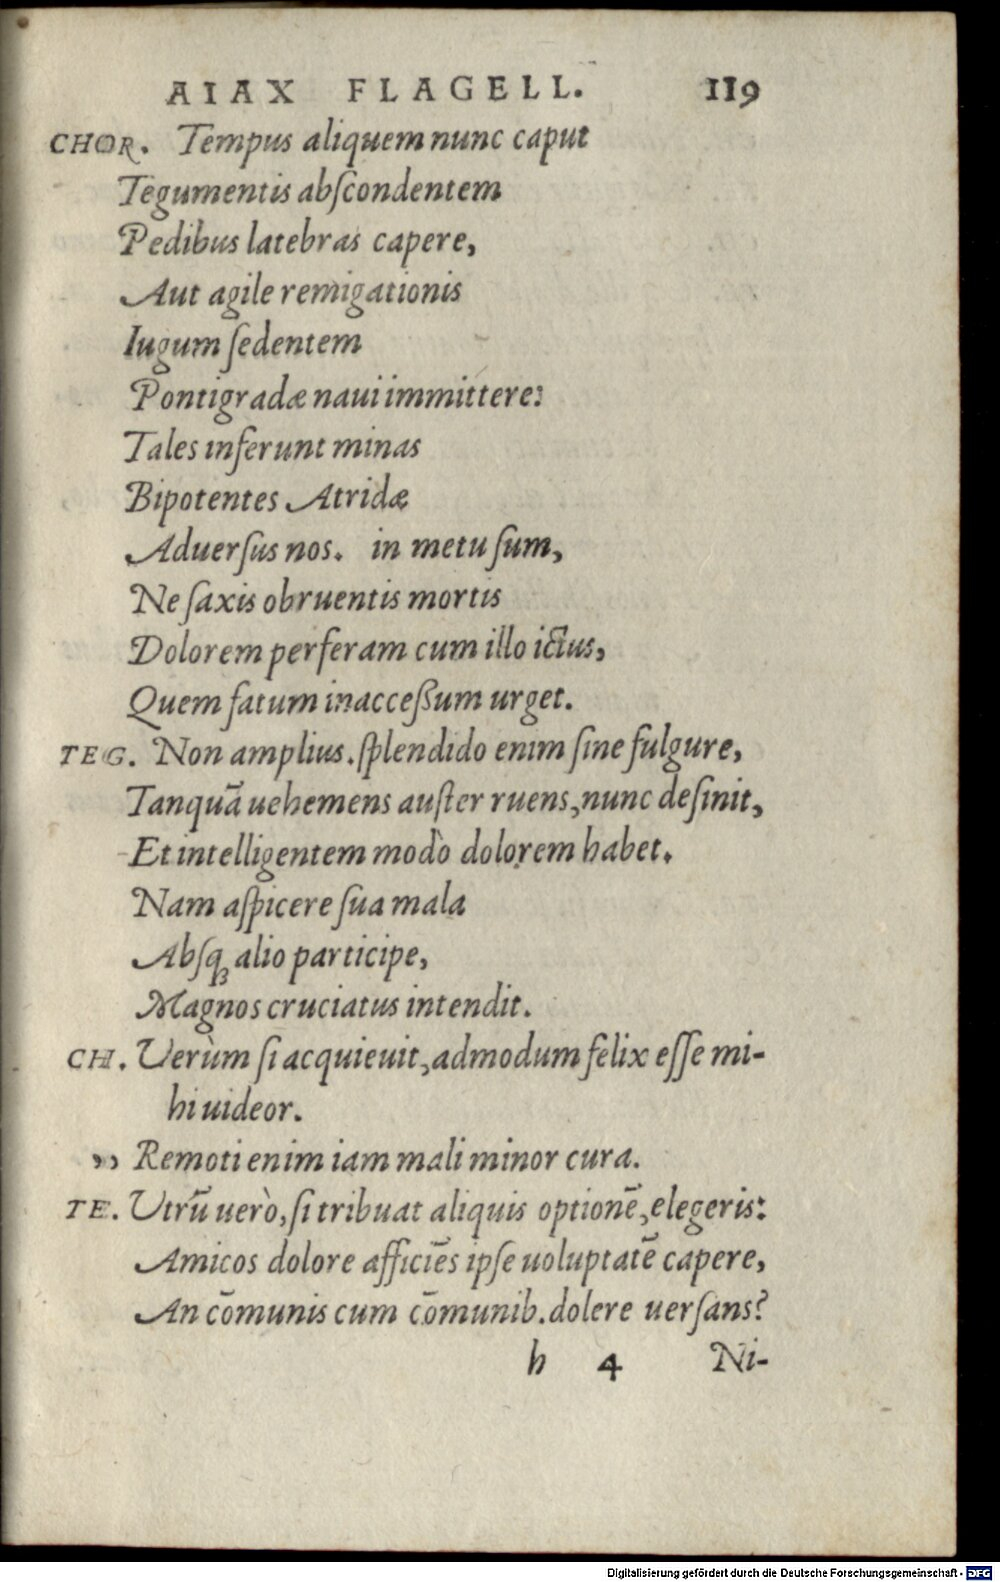 AIAX FLAGELL. 119
CHOR. Tempus aliquem nunc caput
Tegumentis abſcondentem
Pedibus latebras capere,
Aut agile remigationis
Iugum ſedentem
Pontigradæ naui immittere:
Tales inferunt minas
Bipotentes Atridæ
Aduerſus nos. in metu ſum,
Ne ſaxis obruentis mortis
Dolorem perferam cum illo ictus,
Quem fatum inacceßum urget.
TEG. Non amplius. ſplendido enim ſine fulgure,
Tanquā uehemens auſter ruens, nunc deſinit,
Et intelligentem modò dolorem habet.
Nam aſpicere ſua mala
Abſq; alio participe,
Magnos cruciatus intendit.
CH. Verùm ſi acquieuit, admodum felix eſſe mi-
hi uideor.
,, Remoti enim iam mali minor cura.
TE. Vtrū uerò, ſi tribuat aliquis optionē, elegeris:
Amicos dolore afficiēs ipſe uoluptatē capere,
An cōmunis cum cōmunib. dolere uerſans?
h 4 Ni-
Digitalisierung gefördert durch die Deutsche Forschungsgemeinschaft - DFG